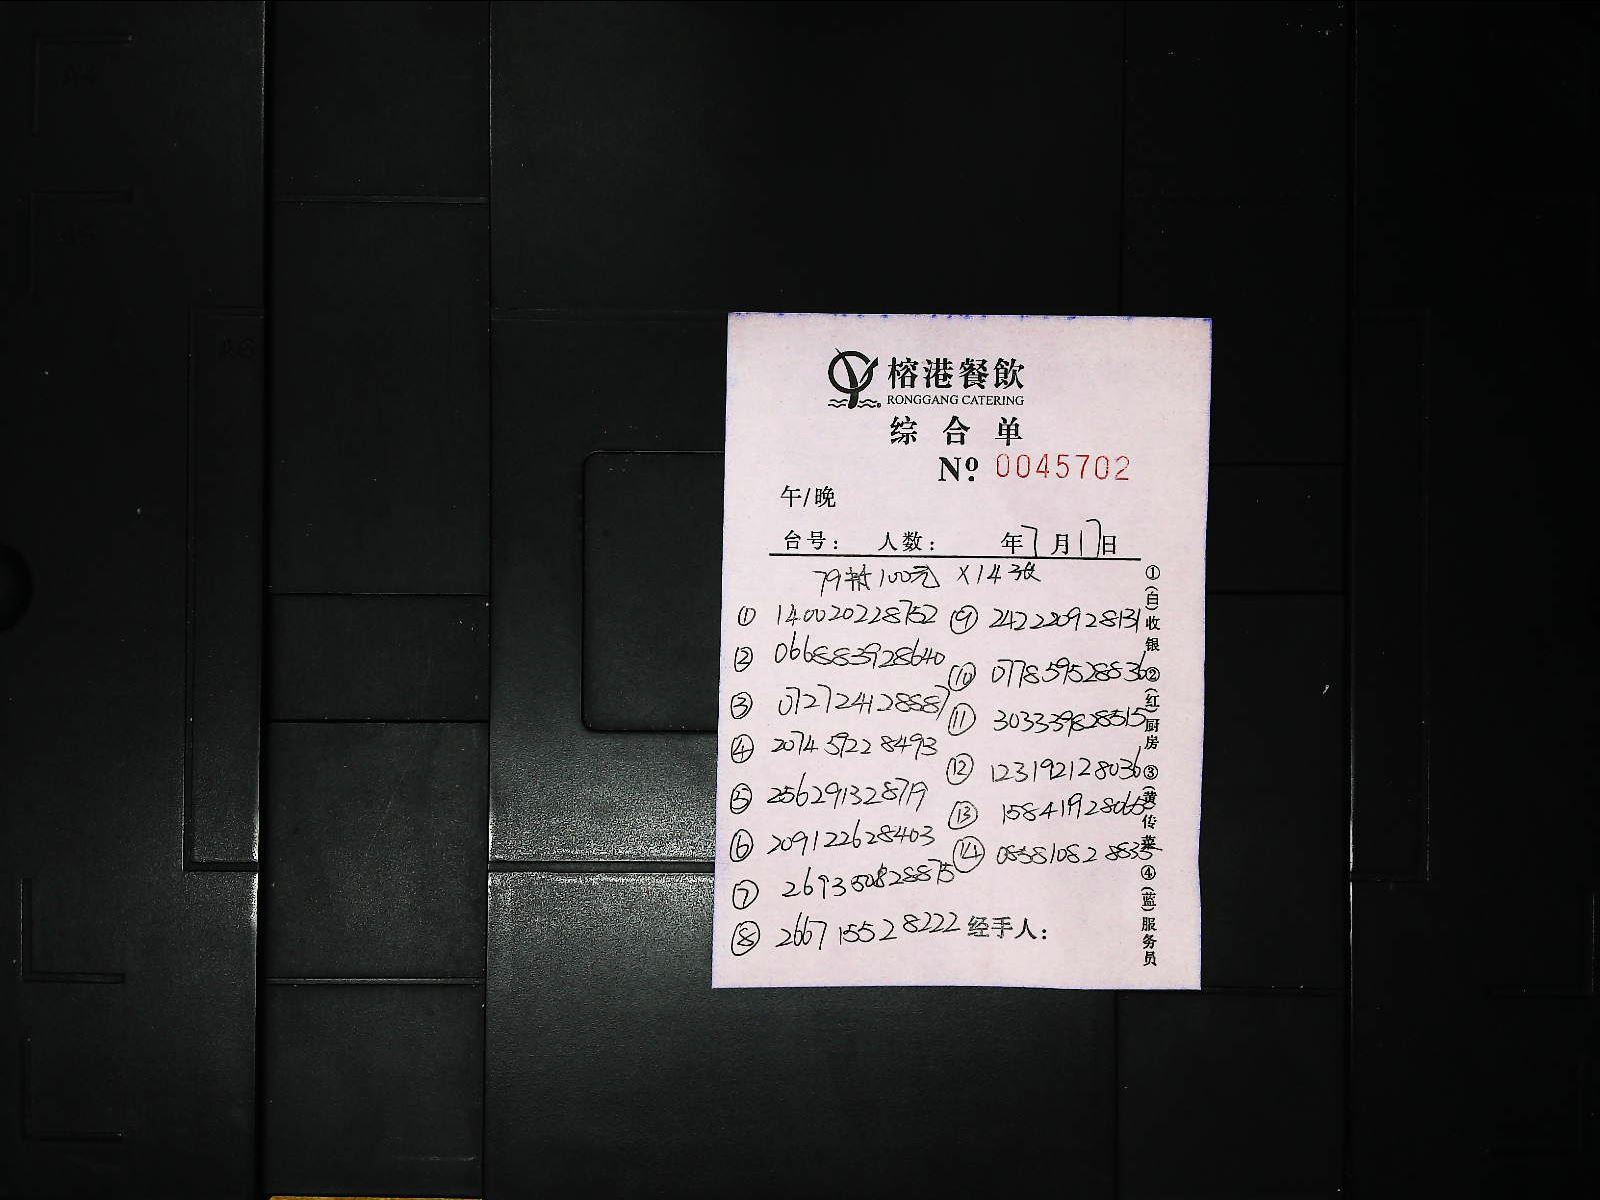 榕港餐飲
RONGGANG CATERING
综合单
№ 0045702
午/晚
台号： 人数： 年7月17日
79抵100元 ×14张
① 140020228752
② 066883928640
③ 072724128887
④ 207459228493
⑤ 256291328719
⑥ 209122628403
⑦ 269350828875
⑧ 266715528222
⑨ 242220928131
⑩ 077859528836
⑪ 303339828515
⑫ 123192128036
⑬ 158419928065
⑭ 085810828835
经手人：
①(白)收银 ②(红)厨房 ③(黄)传菜 ④(蓝)服务员